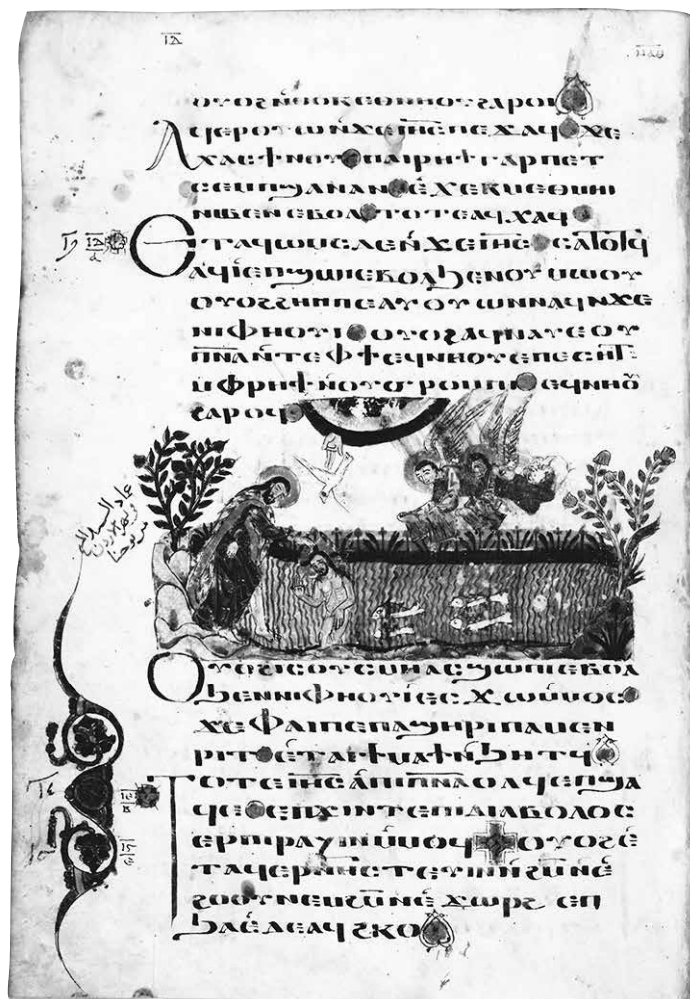 ⲓⲇ̅
ⲟⲩⲟϩⲛ̀ⲑⲟⲕⲉⲑⲛⲏⲟⲩϩⲁⲣⲟⲓ
ⲁϥⲉⲣⲟⲩⲱⲛϫⲉⲓⲏ̅ⲥ̅ⲡⲉϫⲁϥϫⲉ
ⲭⲁⲥϯⲛⲟⲩⲡⲁⲓⲣⲏϯⲅⲁⲣⲡⲉⲧ
ⲥⲉⲙⲡϣⲁⲛⲁⲛⲉ̀ϫⲉⲕⲙⲉⲑⲙⲏⲓ
ⲛⲓⲃⲉⲛⲉⲃⲟⲗⲧⲟⲧⲉⲁϥⲭⲁϥ
ⲉⲧⲁϥⲱⲙⲥⲇⲉⲛ̀ϫⲉⲓⲏ̅ⲥ̅ⲥⲁⲧⲟⲧϥ
ⲁϥⲓ̀ⲉⲡϣⲱⲓⲉⲃⲟⲗϧⲉⲛⲟⲩⲙⲱⲟⲩ
ⲟⲩⲟϩϩⲏⲡⲡⲉⲁⲩⲟⲩⲱⲛⲛⲁϥⲛϫⲉ
ⲛⲓⲫⲏⲟⲩⲓⲟⲩⲟϩⲁϥⲛⲁⲩⲉⲟⲩ
ⲡ̅ⲛ̅ⲁ̅ⲛ̀ⲧⲉⲫϯⲉϥⲛⲏⲟⲩⲉⲡⲉⲥⲏⲧ
ⲙ̀ⲫⲣⲏϯⲛ̀ⲟⲩϭⲣⲟⲙⲡⲓⲉϥⲛⲏⲟⲩ
ϩⲁⲣⲟϥ
عماد السيد المسيح
في نهر الاردن
من يوحنا
ⲟⲩⲟϩⲓⲥⲟⲩⲥⲙⲏⲁⲥϣⲱⲡⲓⲉⲃⲟⲗ
ϧⲉⲛⲛⲓⲫⲏⲟⲩⲓ̀ⲉⲥϫⲱⲙ̀ⲙⲟⲥ
ϫⲉⲫⲁⲓⲡⲉⲡⲁϣⲏⲣⲓⲡⲁⲙⲉⲛ
ⲣⲓⲧⲉ̀ⲧⲁⲓϯⲙⲁϯⲛ̀ϧⲏⲧϥ
ⲧⲟⲧⲉⲓⲏ̅ⲥ̅ⲁ̀ⲡⲓⲡ̅ⲛ̅ⲁ̅ⲟⲗϥⲉⲡϣⲁ
ϥⲉⲉⲡϫⲓⲛⲧⲉⲡⲓⲇⲓⲁⲃⲟⲗⲟⲥ
ⲉⲣⲡⲓⲣⲁⲍⲓⲛⲙ̀ⲙⲟϥⲟⲩⲟϩⲉ̀
ⲧⲁϥⲉⲣⲛⲏⲥⲧⲉⲩⲓⲛⲛ̀ϩⲙ̅ⲛ̀ⲉ̀
ϩⲟⲟⲩⲛⲉⲙϩⲙ̅ⲛ̀ⲉ̀ϫⲱⲣϩⲉⲡ
ϧⲁⲉ̀ⲇⲉⲁϥϩⲕⲟ